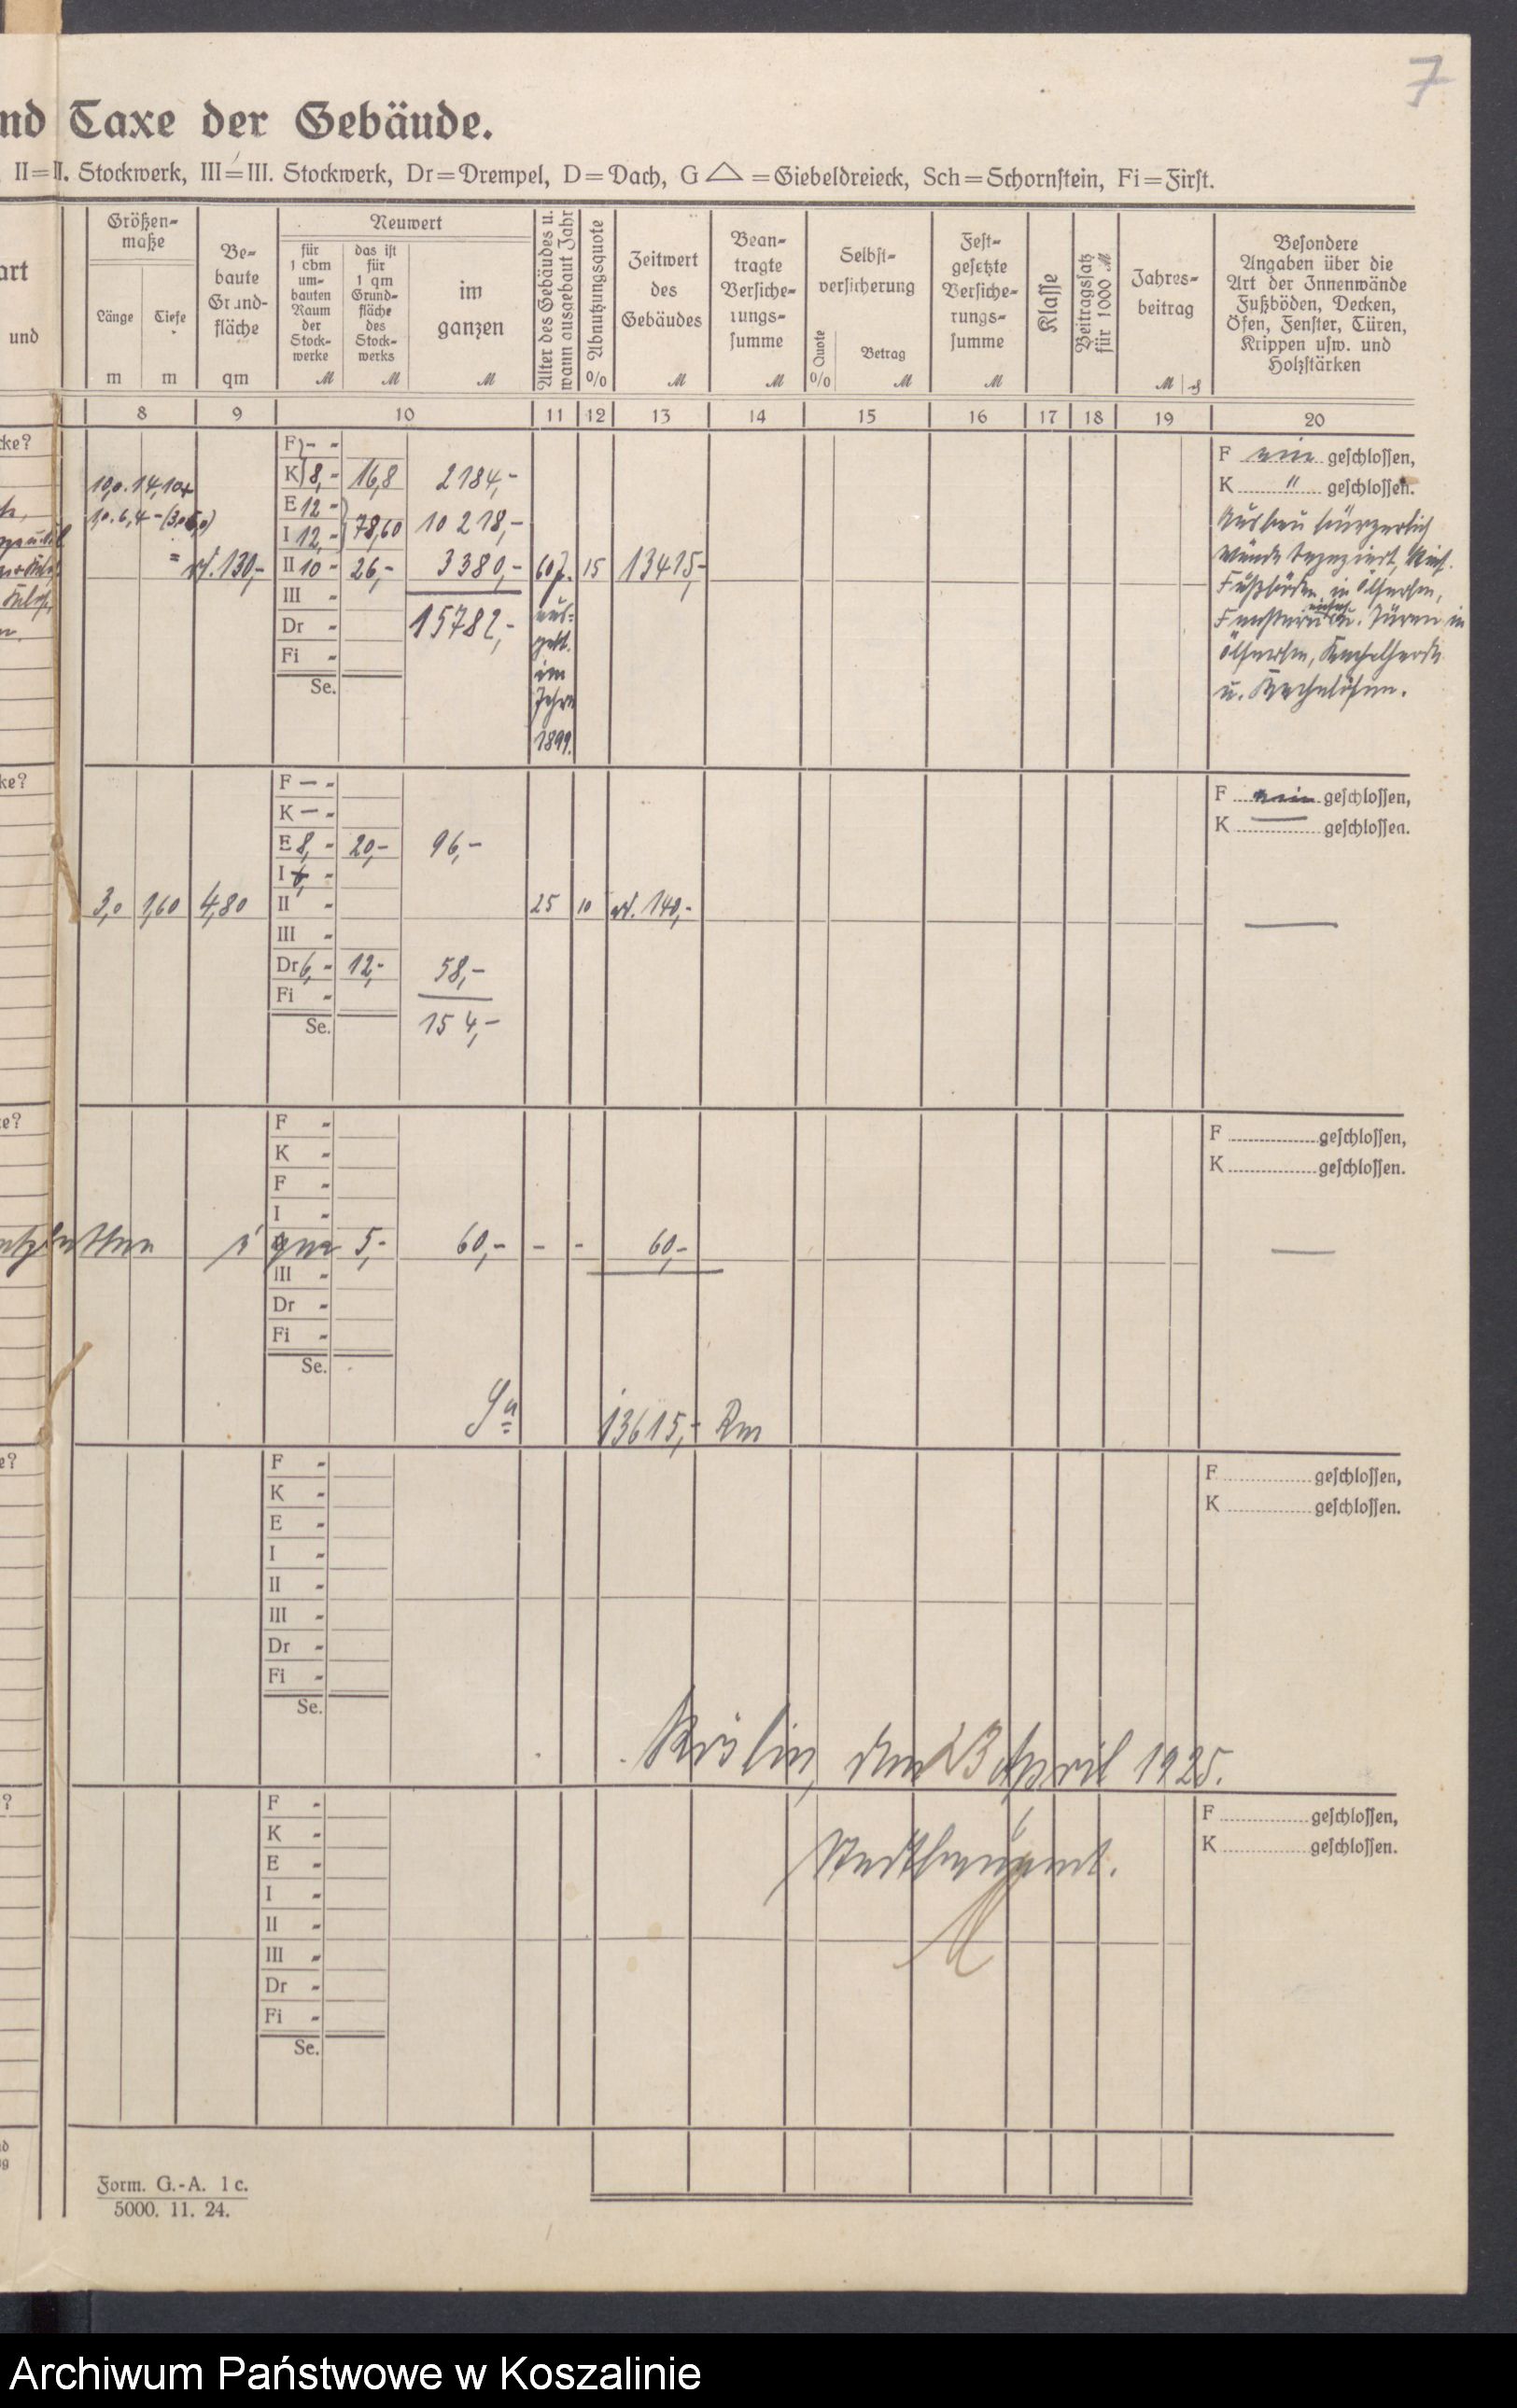 7
nd Taxe der Gebäude.
II=II. Stockwerk, III=III. Stockwerk, Dr=Drempel, D=Dach, G△=Giebeldreieck, Sch=Schornstein, Fi=First.
art
und
Größen-
maße
Länge
Tiefe
m
m
Be-
baute
Grund-
fläche
qm
Neuwert
für
1 cbm
um-
bauten
Raum
der
Stock-
werke
M
das ist
für
1 qm
Grund-
fläche
des
Stock-
werks
M
im
ganzen
M
Alter des Gebäudes u.
wann ausgebaut Jahr
Abnutzungsquote
%
Zeitwert
des
Gebäudes
M
Bean-
tragte
Versiche-
rungs-
summe
M
Selbst-
versicherung
Quote
%
Betrag
M
Fest-
gesetzte
Versiche-
rungs-
summe
M
Klasse
Beitragssatz
für 1000 M
Jahres-
beitrag
M
Besondere
Angaben über die
Art der Innenwände
Fußböden, Decken,
Öfen, Fenster, Türen,
Krippen usw. und
Holzstärken
8 9 10 11 12 13 14 15 16 17 18 19 20
ke?
F - -
K 8,- 16,8 2184,-
E 12 -
I 12,- 78,60 10218,-
II 10 - 26,- 3380,- 60 J. 15 13415,-
III -
Dr - 15782,-
Fi -
Se.
rd. 130,-
im
Jahre
1899.
F nein geschlossen,
K " geschlossen.
Ausbau bürgerlich
Wände tapeziert,
Fußböden in Ölfarben,
u. Türen in
Ölfarben, Kachelherde
u. Kachelöfen.
ke?
F — -
K — -
E 8,- 20,- 96,-
I -
3,0 1,60 4,80 II - 25 10 rd. 140,-
III -
Dr 6,- 12,- 58,-
Fi -
Se. 154,-
F nein geschlossen,
K geschlossen.
F -
K -
F -
I -
qm 5,- 60,- - - 60,-
III -
Dr -
Fi -
Se.
F geschlossen,
K geschlossen.
Sa 13615,- Rm
F -
K -
E -
I -
II -
III -
Dr -
Fi -
Se.
F geschlossen,
K geschlossen.
Köslin, den 23 April 1925.
F -
K -
E -
I -
II -
III -
Dr -
Fi -
Se.
F geschlossen,
K geschlossen.
Stadtbauamt.
Form. G.-A. 1 c.
5000. 11. 24.
Archiwum Państwowe w Koszalinie